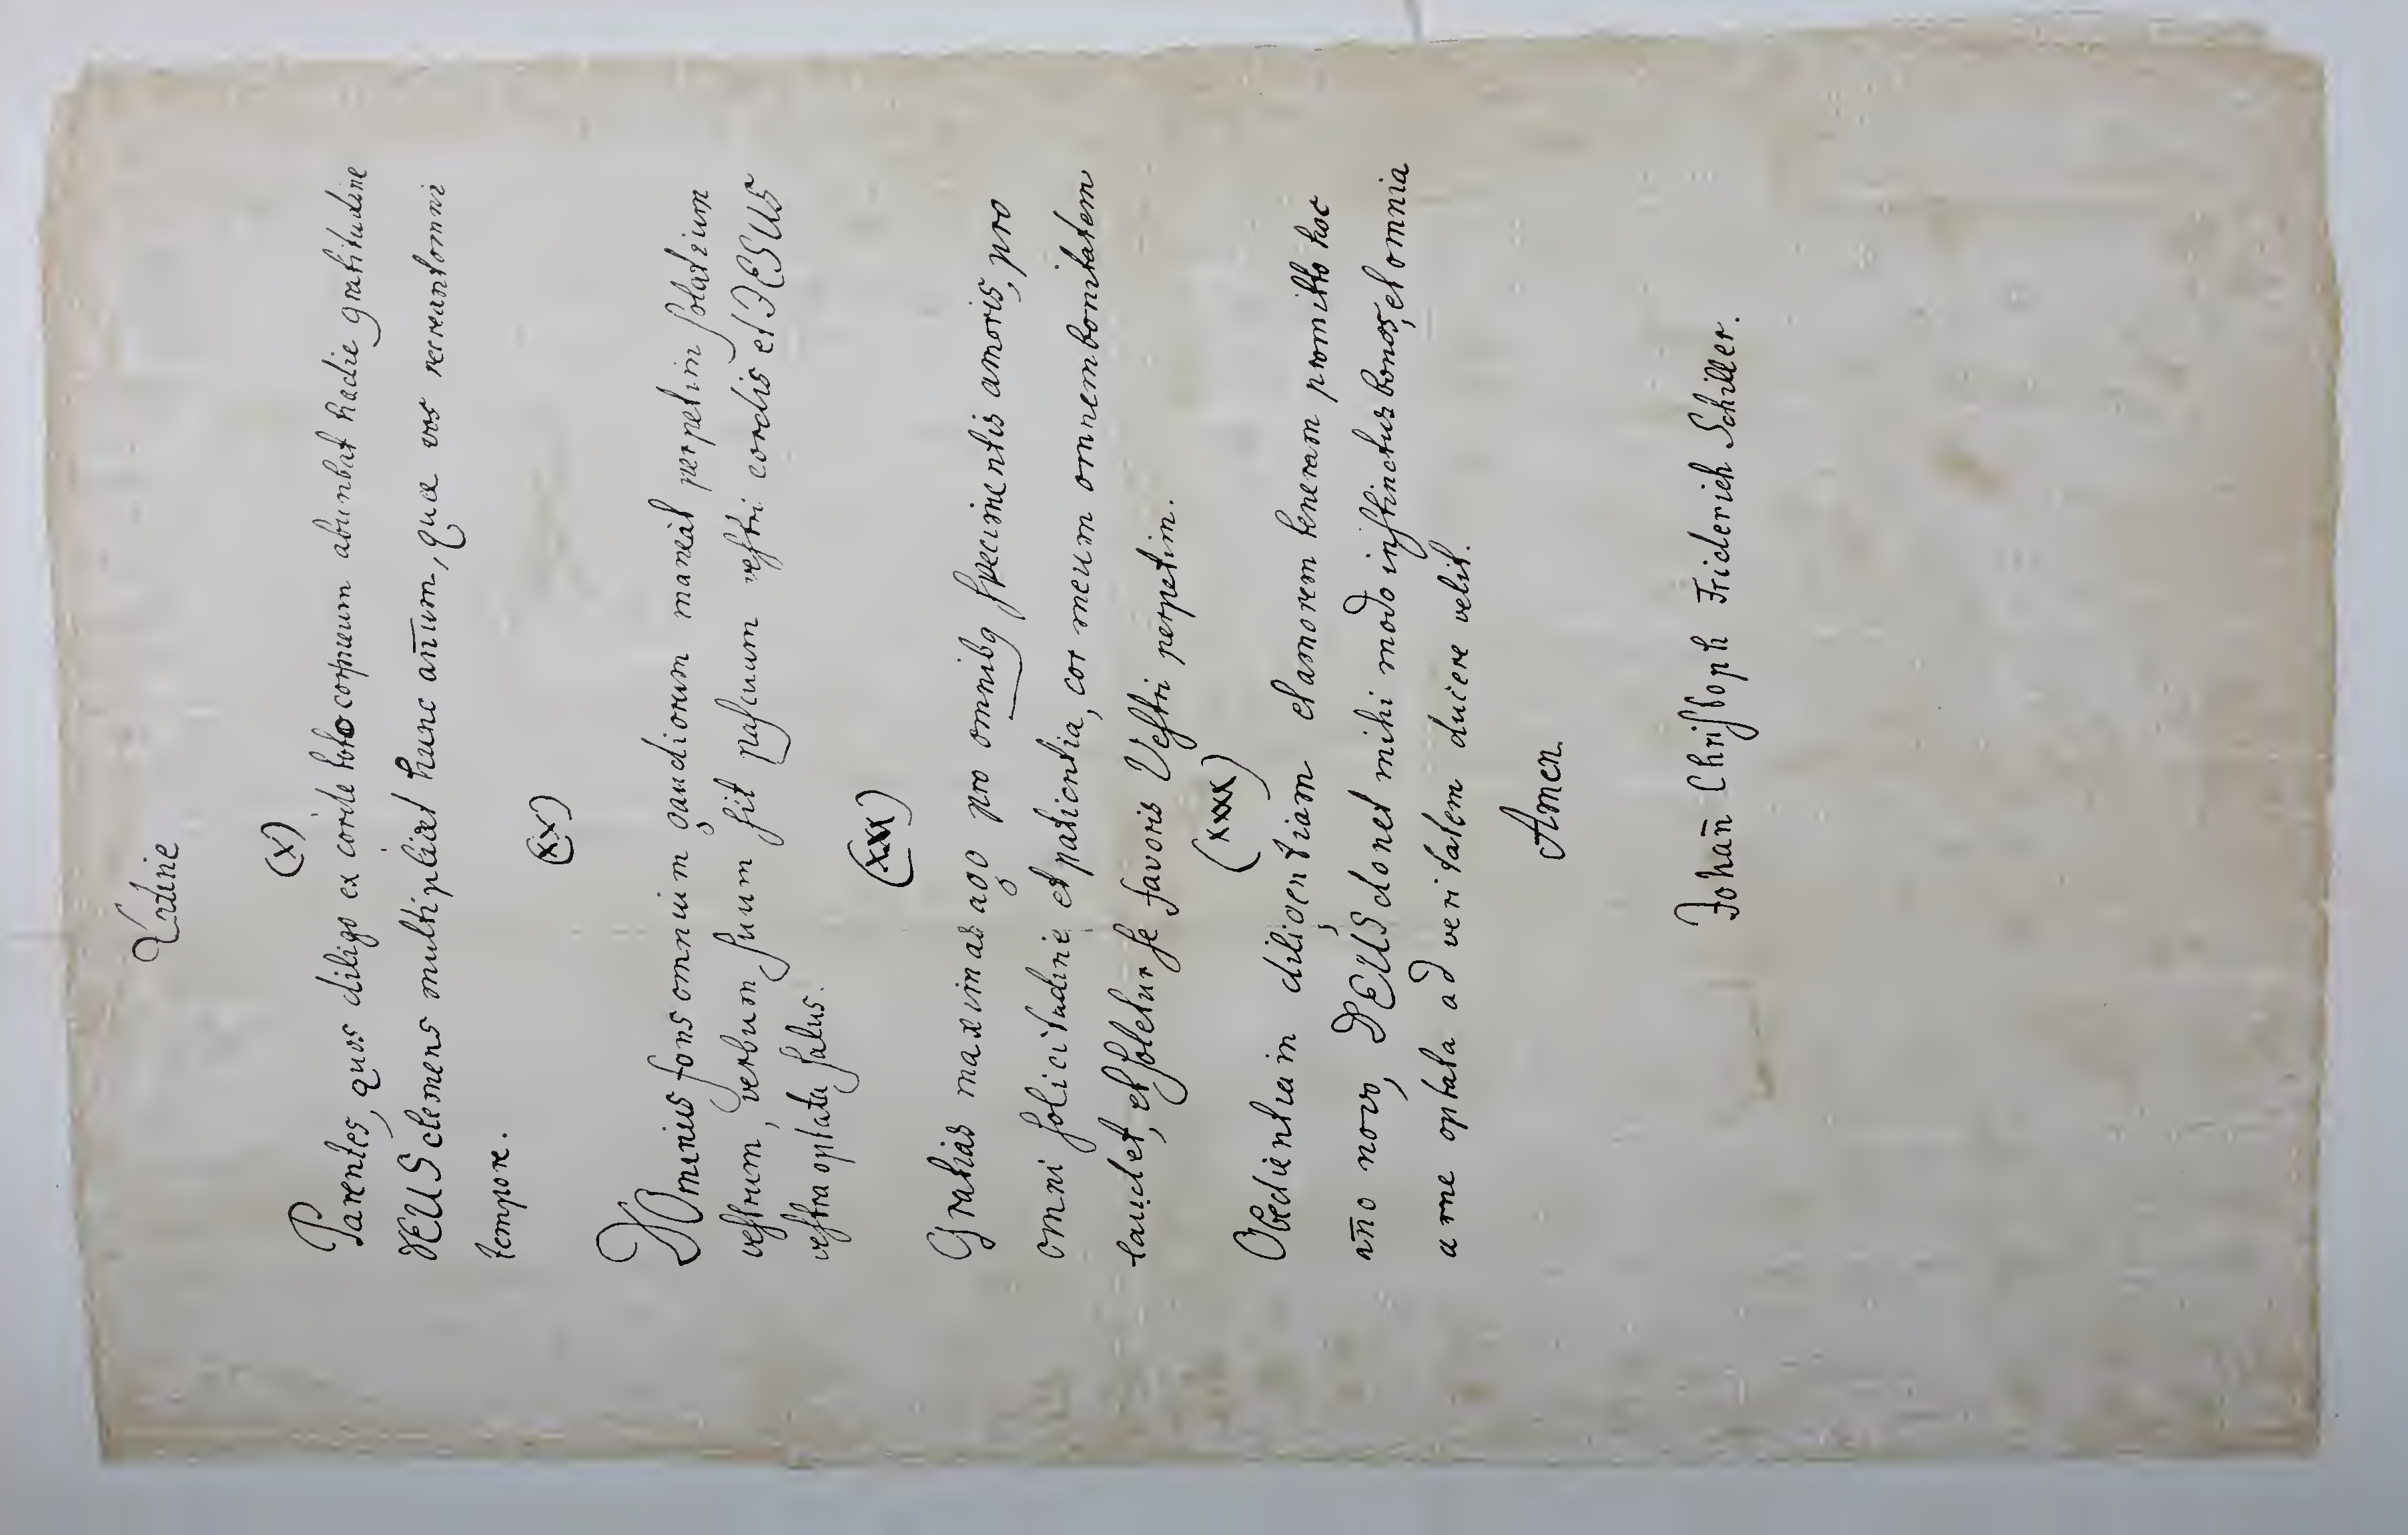 Latine
(X)
Parentes, quos diligo ex corde toto copieum abunbat hadie gratitudine
DEUS clemens multipliat hunc an̄um, quæ vos recreant omni
tempore.
(XX)
DOminus fons omnium gaudiorum maneat perpetim solatium
vestrum, verbum suum sit pascuum vestri cordis et JESUS
vestra optata salus.
(XXX)
Gratias maximas ago pro omnibq specimentis amoris, pro
omni solicitudine et patientia, cor meum omnem bonitatem
laudet, et soletur se favoris Vestri perpetim.
(XXXX)
Obedientiam diligentiam et amorem teneram promitto hoc
an̄o novo, DEUS donet mihi modo instinctus bonos, et omnia
a me optata ad veritatem ducere velit.
Amen.
Johan̄ Christoph Friderich Schiller.